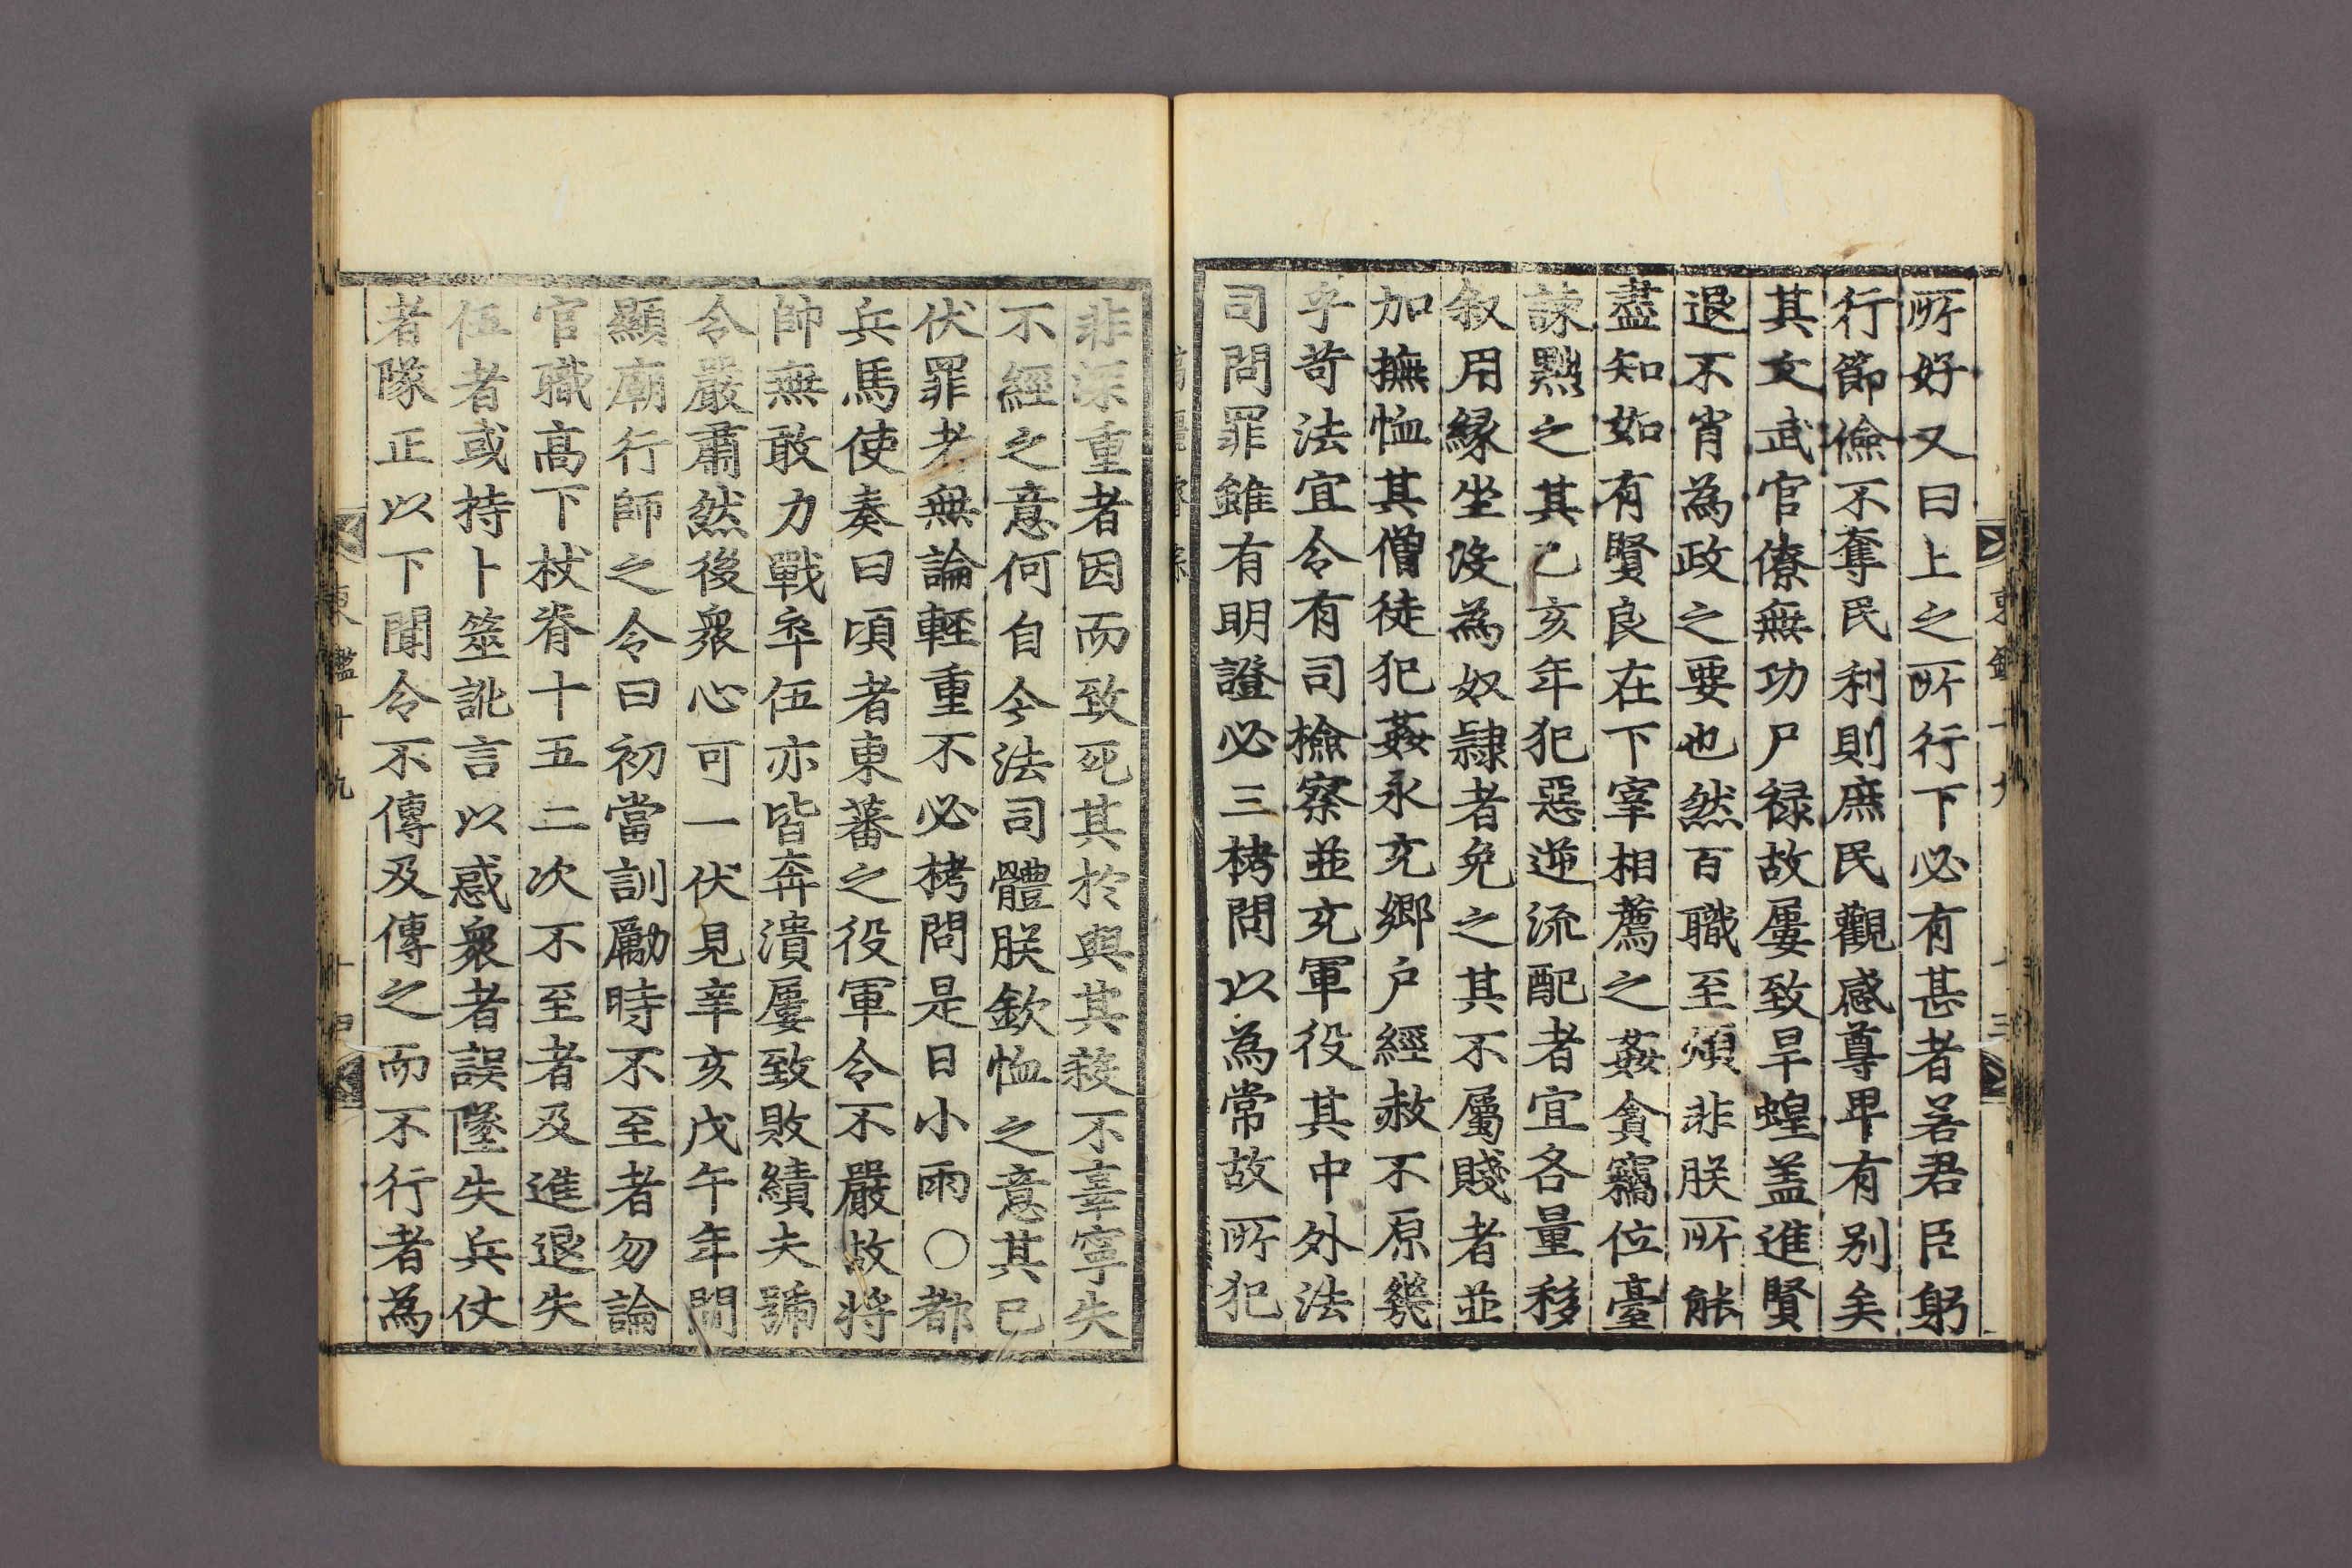 所好又曰上之所行下必有甚者若君臣躬
行節儉不奪民利則庶民觀感尊卑有别矣
其文武官僚無功尸禄故屢致旱蝗盖進賢
退不肖為政之要也然百職至煩非朕所能
盡知如有賢良在下宰相薦之姦貪竊位臺
諫黜之其乙亥年犯惡逆流配者宜各量移
叙用縁坐沒為奴隷者免之其不屬賤者並
加撫恤其僧徒犯姦永充鄉户經赦不原幾
乎苛法宜令有司撿察並充軍役其中外法
司問罪雖有明證必三栲問以為常故所犯
非深重者因而致死其於與其殺不辜寧失
不經之意何自今法司體朕欽恤之意其已
伏罪者無論輕重不必栲問是日小雨〇都
兵馬使奏曰頃者東蕃之役軍令不嚴故將
帥無敢力戰卒伍亦皆奔潰屢致敗績夫號
令嚴肅然後衆心可一伏見辛亥戊午年間
顯廟行師之令曰初當訓勵時不至者勿論
官職高下杖脊十五二次不至者及進退失
伍者或持卜筮訛言以惑衆者誤墜失兵仗
者隊正以下聞令不傳及傳之而不行者為